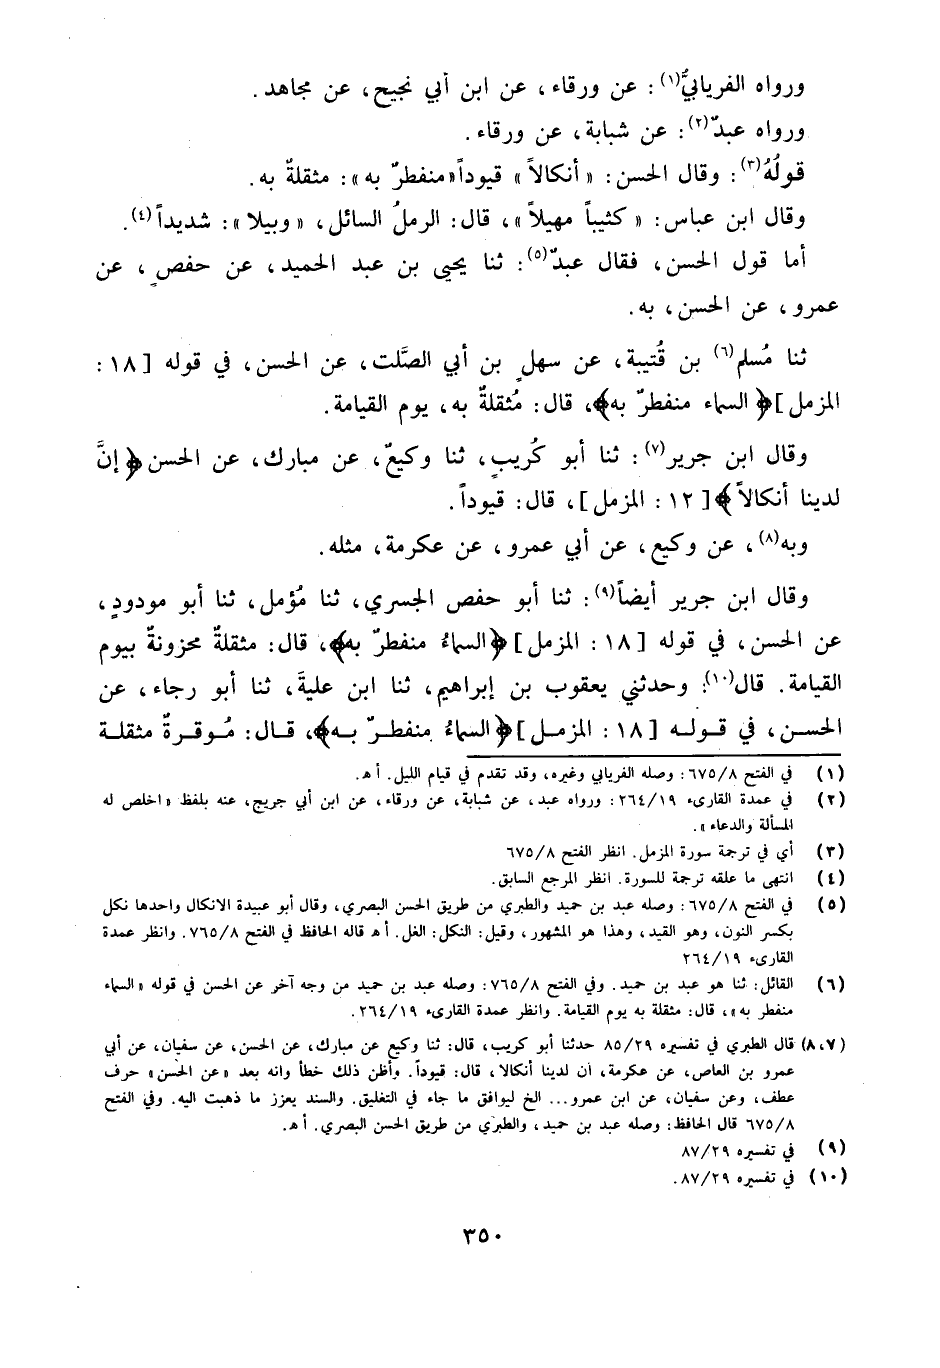 ورواه الفريابيُّ(١): عن ورقاء، عن ابن أبي نجيح، عن مجاهد.
ورواه عبدٌ(٢): عن شبابة، عن ورقاء.
قولُهُ(٣): وقال الحسن: «أنكالاً» قيوداً «منفطرٌ به»: مثقلةٌ به.
وقال ابن عباس: «كثيباً مهيلاً»، قال: الرملُ السائل، «وبيلا»: شديداً(٤).
أما قول الحسن، فقال عبدٌ(٥): ثنا يحيى بن عبد الحميد، عن حفصٍ، عن
عمرو، عن الحسن، به.
ثنا مُسلم(٦) بن قُتيبة، عن سهلٍ بن أبي الصَّلت، عن الحسن، في قوله [١٨:
المزمل] ﴿السماء منفطرٌ به﴾، قال: مُثقلةٌ به، يوم القيامة.
وقال ابن جرير(٧): ثنا أبو كُريبٍ، ثنا وكيعٌ، عن مبارك، عن الحسن ﴿إنَّ
لدينا أنكالاً﴾ [١٢: المزمل]، قال: قيوداً.
وبه(٨)، عن وكيع، عن أبي عمرو، عن عكرمة، مثله.
وقال ابن جرير أيضاً(٩): ثنا أبو حفص الجسري، ثنا مُؤمل، ثنا أبو مودودٍ،
عن الحسن، في قوله [١٨: المزمل] ﴿السماءُ منفطرٌ به﴾، قال: مثقلةٌ محزونةٌ بيوم
القيامة. قال(١٠): وحدثني يعقوب بن إبراهيم، ثنا ابن عليةَ، ثنا أبو رجاء، عن
الحسن، في قوله [١٨: المزمل] ﴿السماءُ منفطرٌ به﴾، قال: مُوقرةٌ مثقلة
(١) في الفتح ٦٧٥/٨: وصله الفريابي وغيره، وقد تقدم في قيام الليل. أهـ.
(٢) في عمدة القارىء ٢٦٤/١٩: ورواه عبد، عن شبابة، عن ورقاء، عن ابن أبي جريج، عنه بلفظ «اخلص له
المسألة والدعاء».
(٣) أي في ترجمة سورة المزمل. انظر الفتح ٦٧٥/٨
(٤) انتهى ما علقه ترجمة للسورة. انظر المرجع السابق.
(٥) في الفتح ٦٧٥/٨: وصله عبد بن حميد والطبري من طريق الحسن البصري، وقال أبو عبيدة الانكال واحدها نكل
بكسر النون، وهو القيد، وهذا هو المشهور، وقيل: النكل: الغل. أهـ قاله الحافظ في الفتح ٧٦٥/٨. وانظر عمدة
القارىء ٢٦٤/١٩
(٦) القائل: ثنا هو عبد بن حميد. وفي الفتح ٧٦٥/٨: وصله عبد بن حميد من وجه آخر عن الحسن في قوله «السماء
منفطر به»، قال: مثقلة به يوم القيامة. وانظر عمدة القارىء ٢٦٤/١٩.
(٧،٨) قال الطبري في تفسيره ٨٥/٢٩ حدثنا أبو كريب، قال: ثنا وكيع عن مبارك، عن الحسن، عن سفيان، عن أبي
عمرو بن العاص، عن عكرمة، أن لدينا أنكالا، قال: قيوداً. وأظن ذلك خطأ وانه بعد «عن الحسن» حرف
عطف، وعن سفيان، عن ابن عمرو... الخ ليوافق ما جاء في التغليق. والسند يعزز ما ذهبت اليه. وفي الفتح
٦٧٥/٨ قال الحافظ: وصله عبد بن حميد، والطبري من طريق الحسن البصري. أهـ.
(٩) في تفسيره ٨٧/٢٩
(١٠) في تفسيره ٨٧/٢٩.
٣٥٠